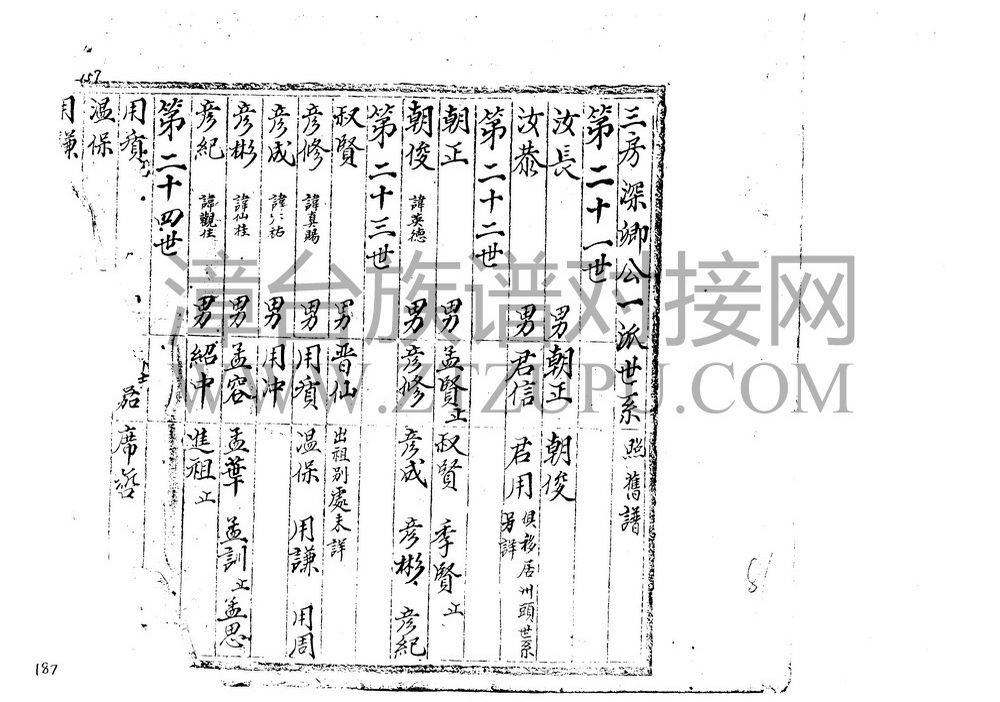 三房深卿公一派世系 照舊譜
第二十一世
汝長 男 朝正 朝俊
汝恭 男 君信 君用 俱移居州頭世系另詳
第二十二世
朝正 男 孟賢止 叔賢 季賢止
朝俊 諱英德 男 彥修 彥成 彥彬 彥紀
第二十三世
叔賢 男 晋仙 出祖別處未詳
彥修 諱真賜 男 用賓 温保 用謙 用周
彥成 諱 祐 男 用冲
彥彬 諱仙桂 男 孟容 孟華 孟訓止 孟思
彥紀 諱觀住 男 紹冲 進祖止
第二十四世
用賓 席
温保
用謙
157
187
漳台族谱对接网
WWW.ZTZUPU.COM